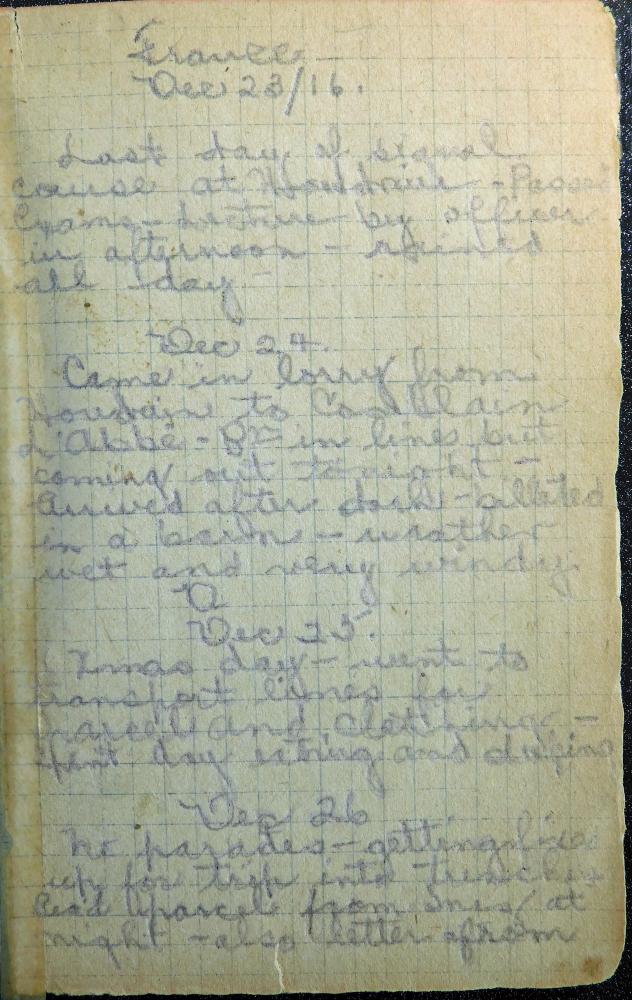 France
Dec 23/16.
Last day of signal
course at Houdain - Passed
Exams - Lecture by officer
in afternoon - rained
all day -
Dec 24.
Came in lorry from
Houdain to Camblain
L'Abbé - Bn in lines but
coming out tonight -
Arrived after dark - billeted
in a barn - weather
wet and very windy.
Dec 25.
Xmas day - went to
transport lines for
parcel and clothing -
spent day eating and
Dec 26
No parades - getting fixed
up for trip into trenches
Rec'd parcel from at
night - also letter from